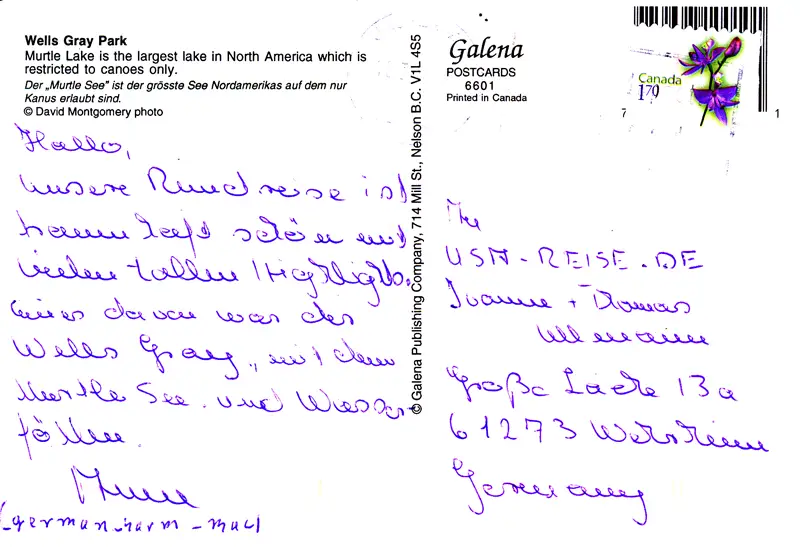 Wells Gray Park
Murtle Lake is the largest lake in North America which is
restricted to canoes only.
Der „Murtle See" ist der grösste See Nordamerikas auf dem nur
Kanus erlaubt sind.
© David Montgomery photo
Hallo,
unsere Rundreise ist
traumhaft schön mit
vielen tollen Highlights.
Eines davon war der
Wells Gray, mit dem
Murtle See und Wasser-
fällen.
© Galena Publishing Company, 714 Mill St., Nelson B.C. V1L 4S5
Galena
POSTCARDS
6601
Printed in Canada
Canada
170
7 1
USA-REISE.DE
+ Thomas
Ullmann
Große Lache 13a
61273 Wehrheim
Germany